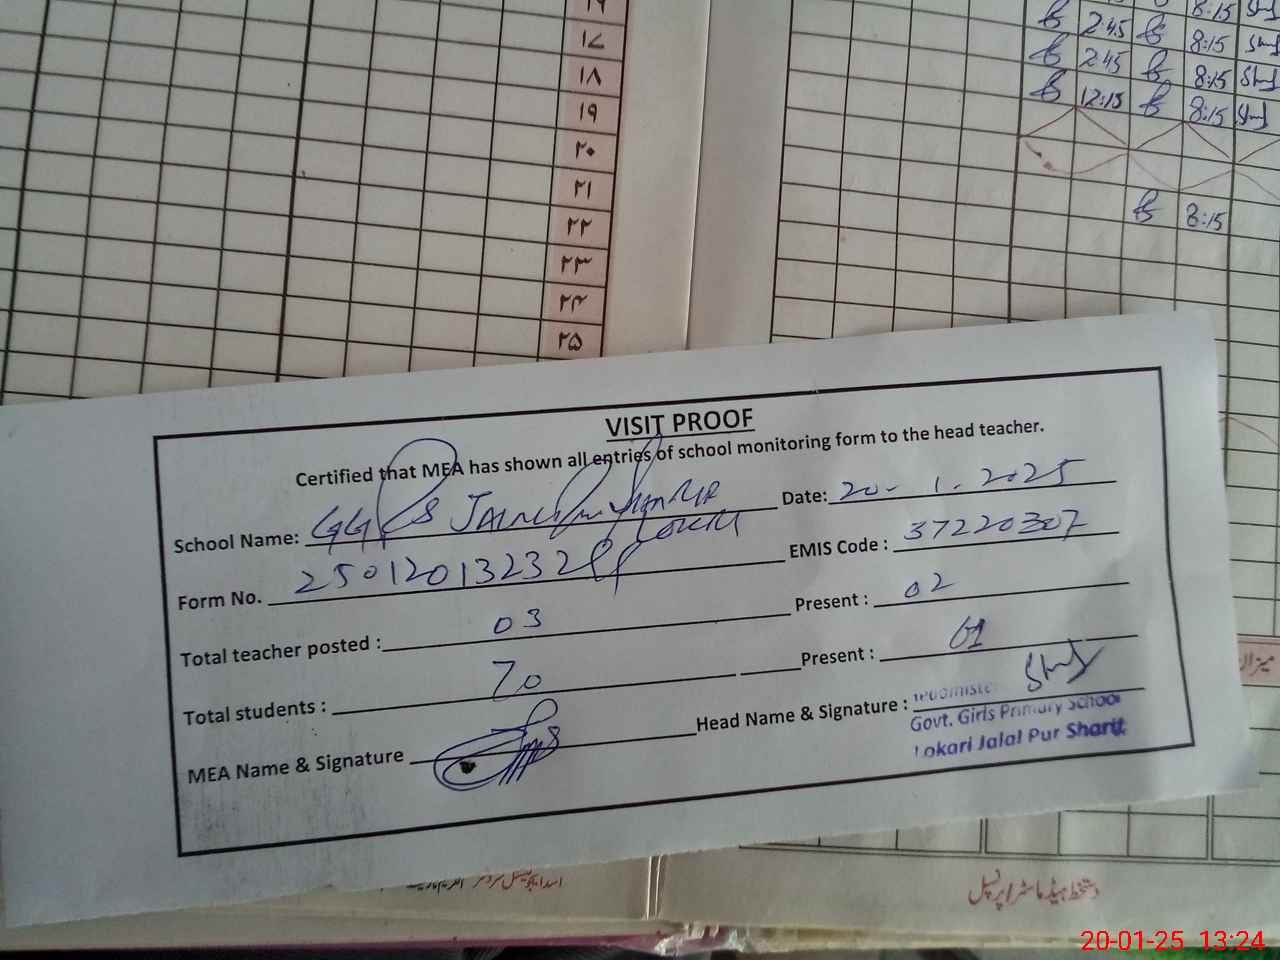 ۱۷
۱۸
۱۹
۲۰
۲۱
۲۲
۲۳
۲۴
۲۵
8:15
2:45 8:15
2:45 8:15
12:15 8:15
8:15
میزان
VISIT PROOF
Certified that MEA has shown all entries of school monitoring form to the head teacher.
School Name: GGPS Date: 20-1-2025
Form No. 250120132328 EMIS Code: 37220307
Total teacher posted: 03 Present: 02
Total students: 70 Present: 61
MEA Name & Signature Head Name & Signature:
Govt. Girls Primary School
Lokari Jalal Pur Sharif
دستخط ہیڈ ماسٹر/پرنسپل
20-01-25 13:24